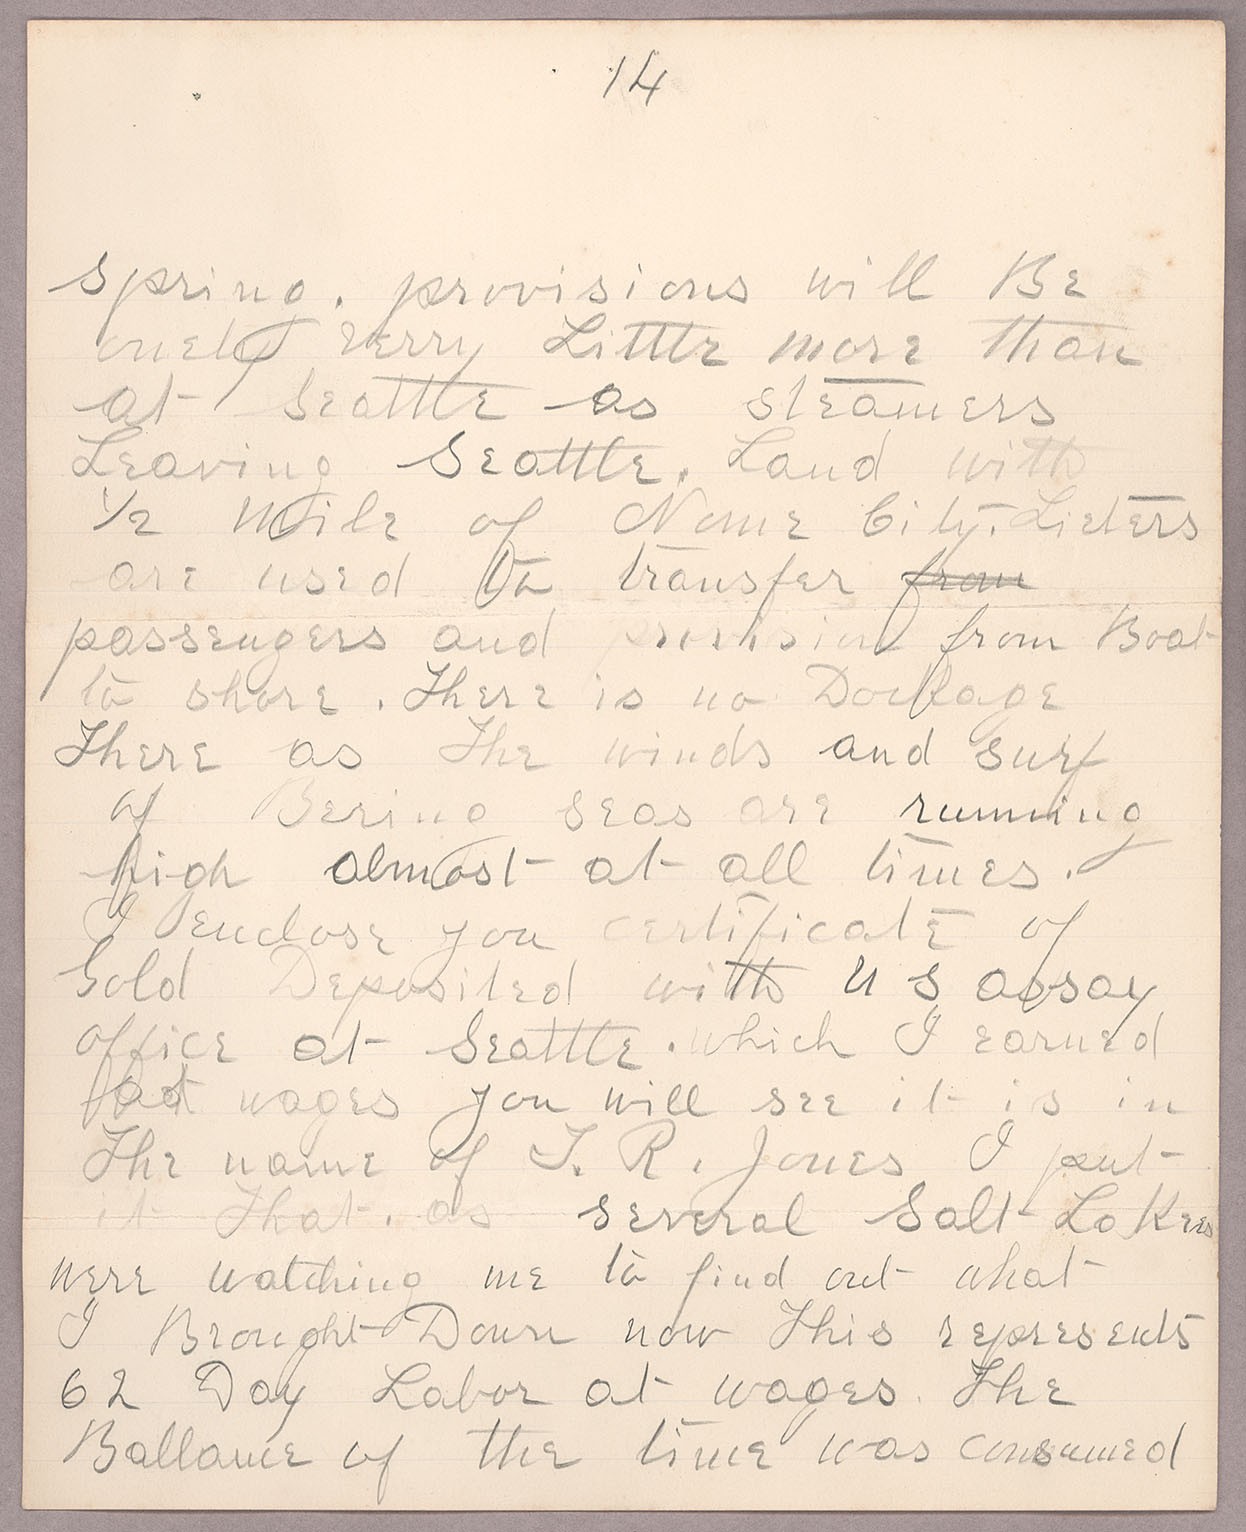 14
Spring. provisions will Be
onely verry Little more than
at Seattle as steamers
Leaving Seattle. Land with
1/2 Mile of Nome City. Lieters
are used to transfer ~~from~~
passengers and provision from Boat
to shore. There is no Dockage
There as The winds and surf
of Bering seas are running
high almost at all times.
I enclose you certificate of
Gold Deposited with U S assay
office at Seattle. which I earned
at wages you will see it is in
The name of T. R. Jones I put
it That. as several Salt Lakers
were watching me to find out what
I Brought Down now This represents
62 Day Labor at wages. The
Ballance of the time was consumed